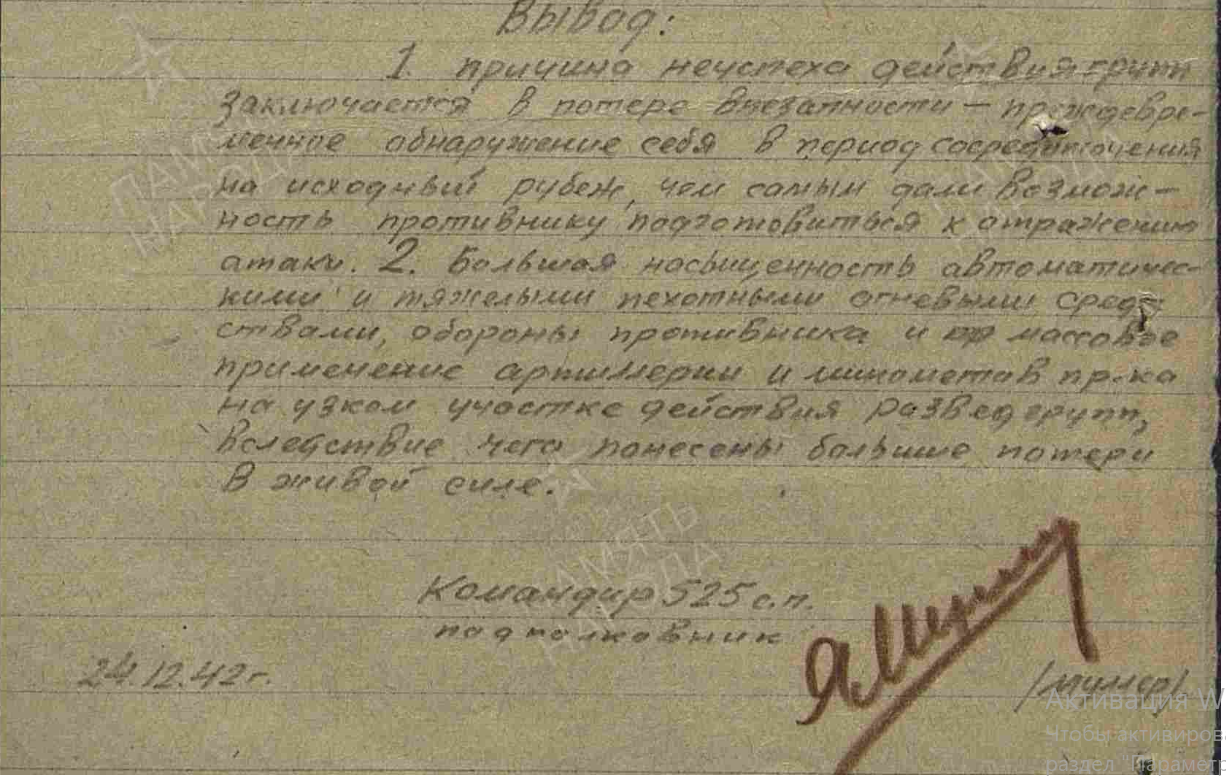 Вывод:
1. причина неуспеха действия групп
заключается в потере внезапности — преждевре-
менное обнаружение себя в период сосредоточения
на исходный рубеж, чем самым дали возмож-
ность противнику подготовиться к отражению
атаки. 2. Большая насыщенность автоматичес-
кими и тяжелыми пехотными огневыми сред-
ствами, обороны противника и массовое
применение артиллерии и минометов пр-ка
на узком участке действия разведгрупп,
вследствие чего понесены большие потери
в живой силе.
Командир 525 с.п.
подполковник
24.12.42 г.
ПАМЯТЬ
НАРОДА
ПАМЯТЬ
НАРОДА
Активация W
Чтобы активиров
раздел "Параметр